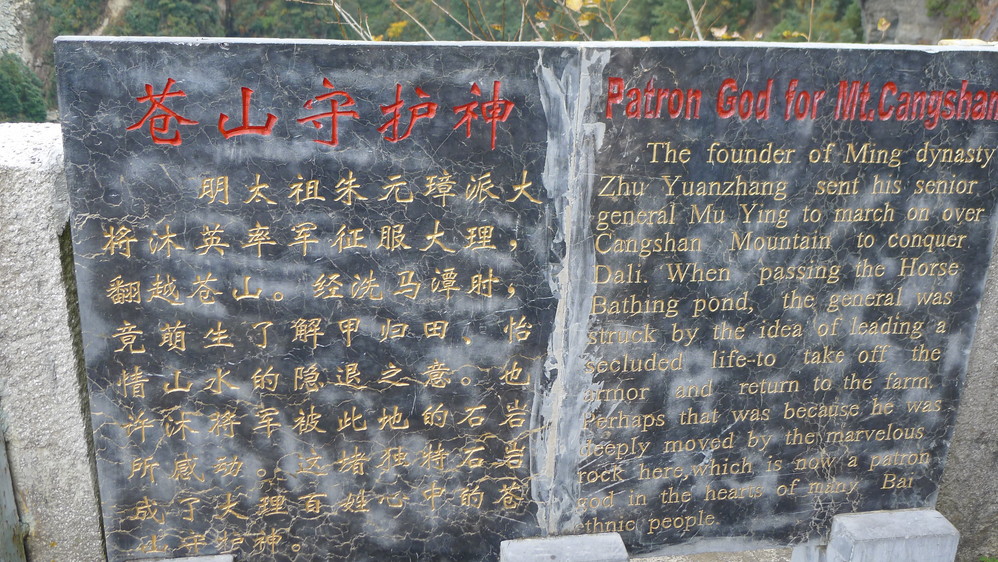 苍山守护神
明太祖朱元璋派大
将沐英率军征服大理，
翻越苍山。经洗马潭时，
竟萌生了解甲归田、怡
情山水的隐退之意。也
许沐将军被此地的石岩
所感动。这堵独特石岩
成了大理百姓心中的苍
山守护神。
Patron God for Mt.Cangshan
The founder of Ming dynasty
Zhu Yuanzhang sent his senior
general Mu Ying to march on over
Cangshan Mountain to conquer
Dali. When passing the Horse
Bathing pond, the general was
struck by the idea of leading a
secluded life-to take off the
armor and return to the farm.
Perhaps that was because he was
deeply moved by the marvelous
rock here,which is now a patron
god in the hearts of many Bai
ethnic people.